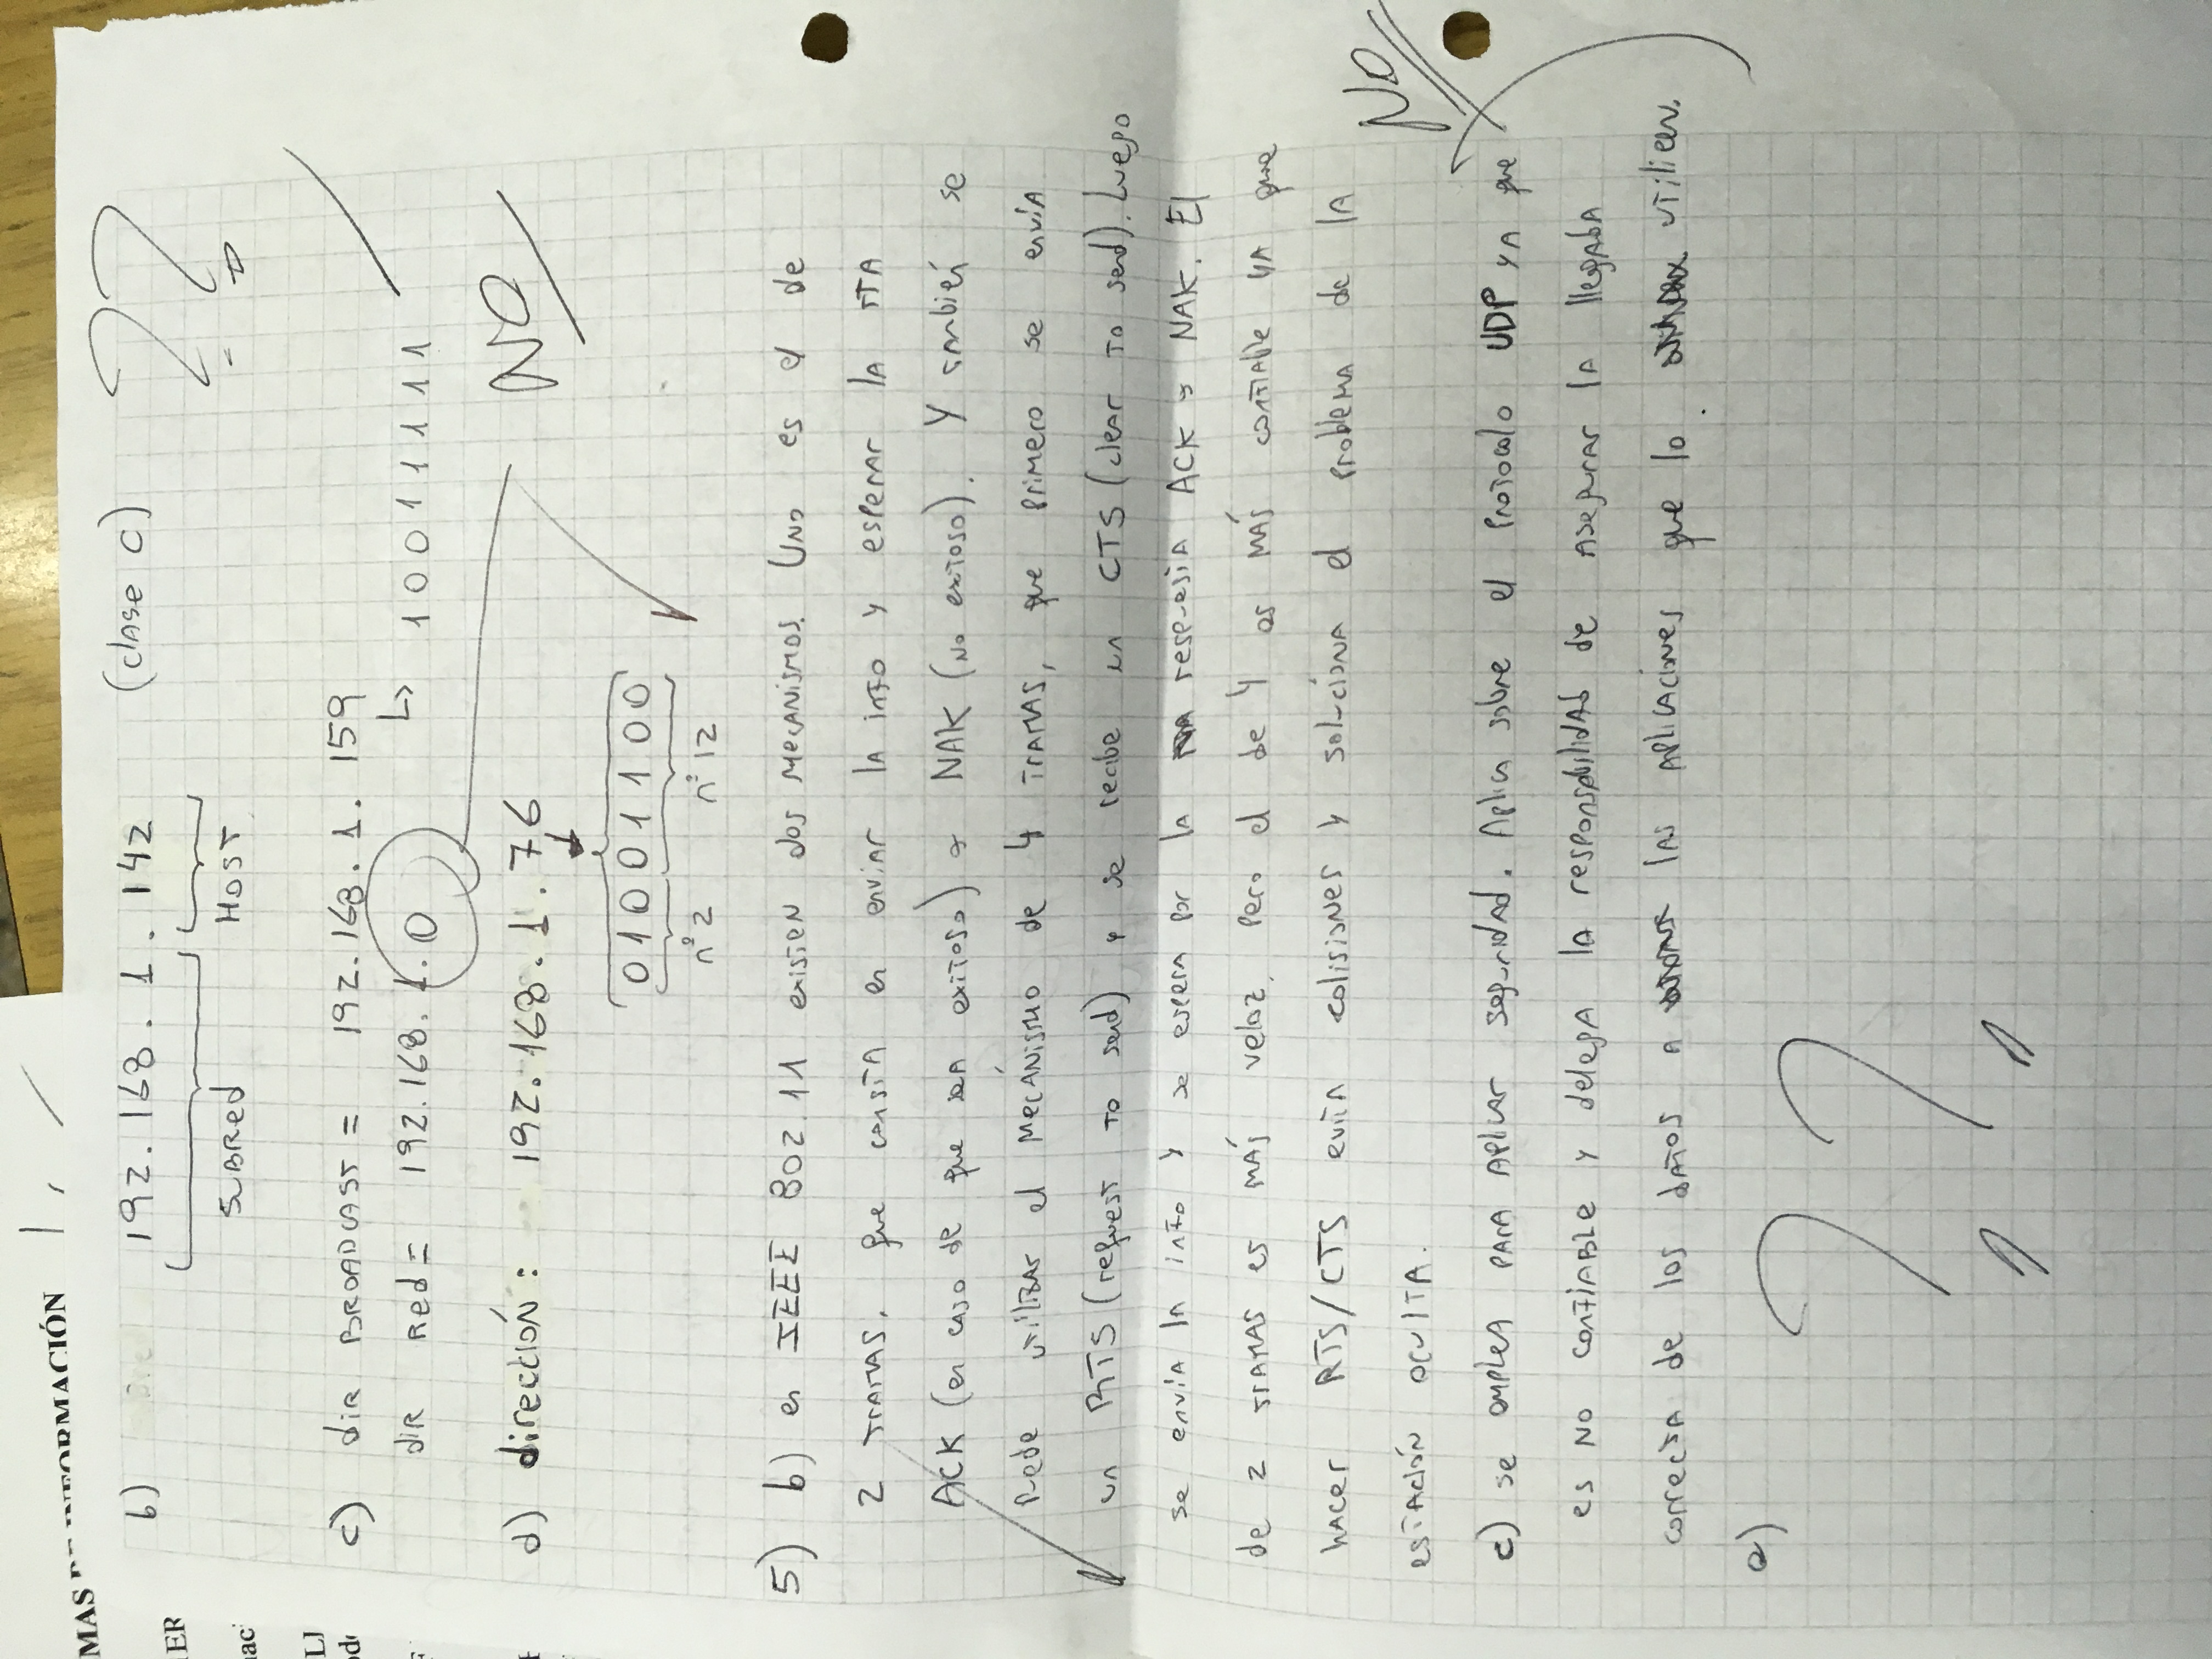 MAS DE INFORMACIÓN
b) 192.168.1.142 (clase C)
SUBRed HOST
??
c) dir BROADCAST = 192.168.1.159
dir Red = 192.168.1.0 ↳ 10011111
d) dirección: 192.168.1.76
NO
01001100
n°2 n°12
5) b) en IEEE 802.11 existen dos mecanismos. Uno es el de
2 tramas. que consta en enviar la info y esperar la rta
ACK (en caso de que sea exitoso) o NAK (no exitoso). Y también se
puede utilizar el mecanismo de 4 tramas, que primero se envía
un RTS (request to send) y se recibe un CTS (clear to send). Luego
se envía la info y se espera por la respuesta ACK o NAK. El
de 2 tramas es más veloz, pero el de 4 es más confiable ya que
hacer RTS/CTS evita colisiones y soluciona el problema de la
estación oculta.
NO
c) se emplea para aplicar seguridad. Aplica sobre el protocolo UDP ya que
es no confiable y delega la responsabilidad de asegurar la llegada
correcta de los datos a las aplicaciones que lo utilicen.
e)
??